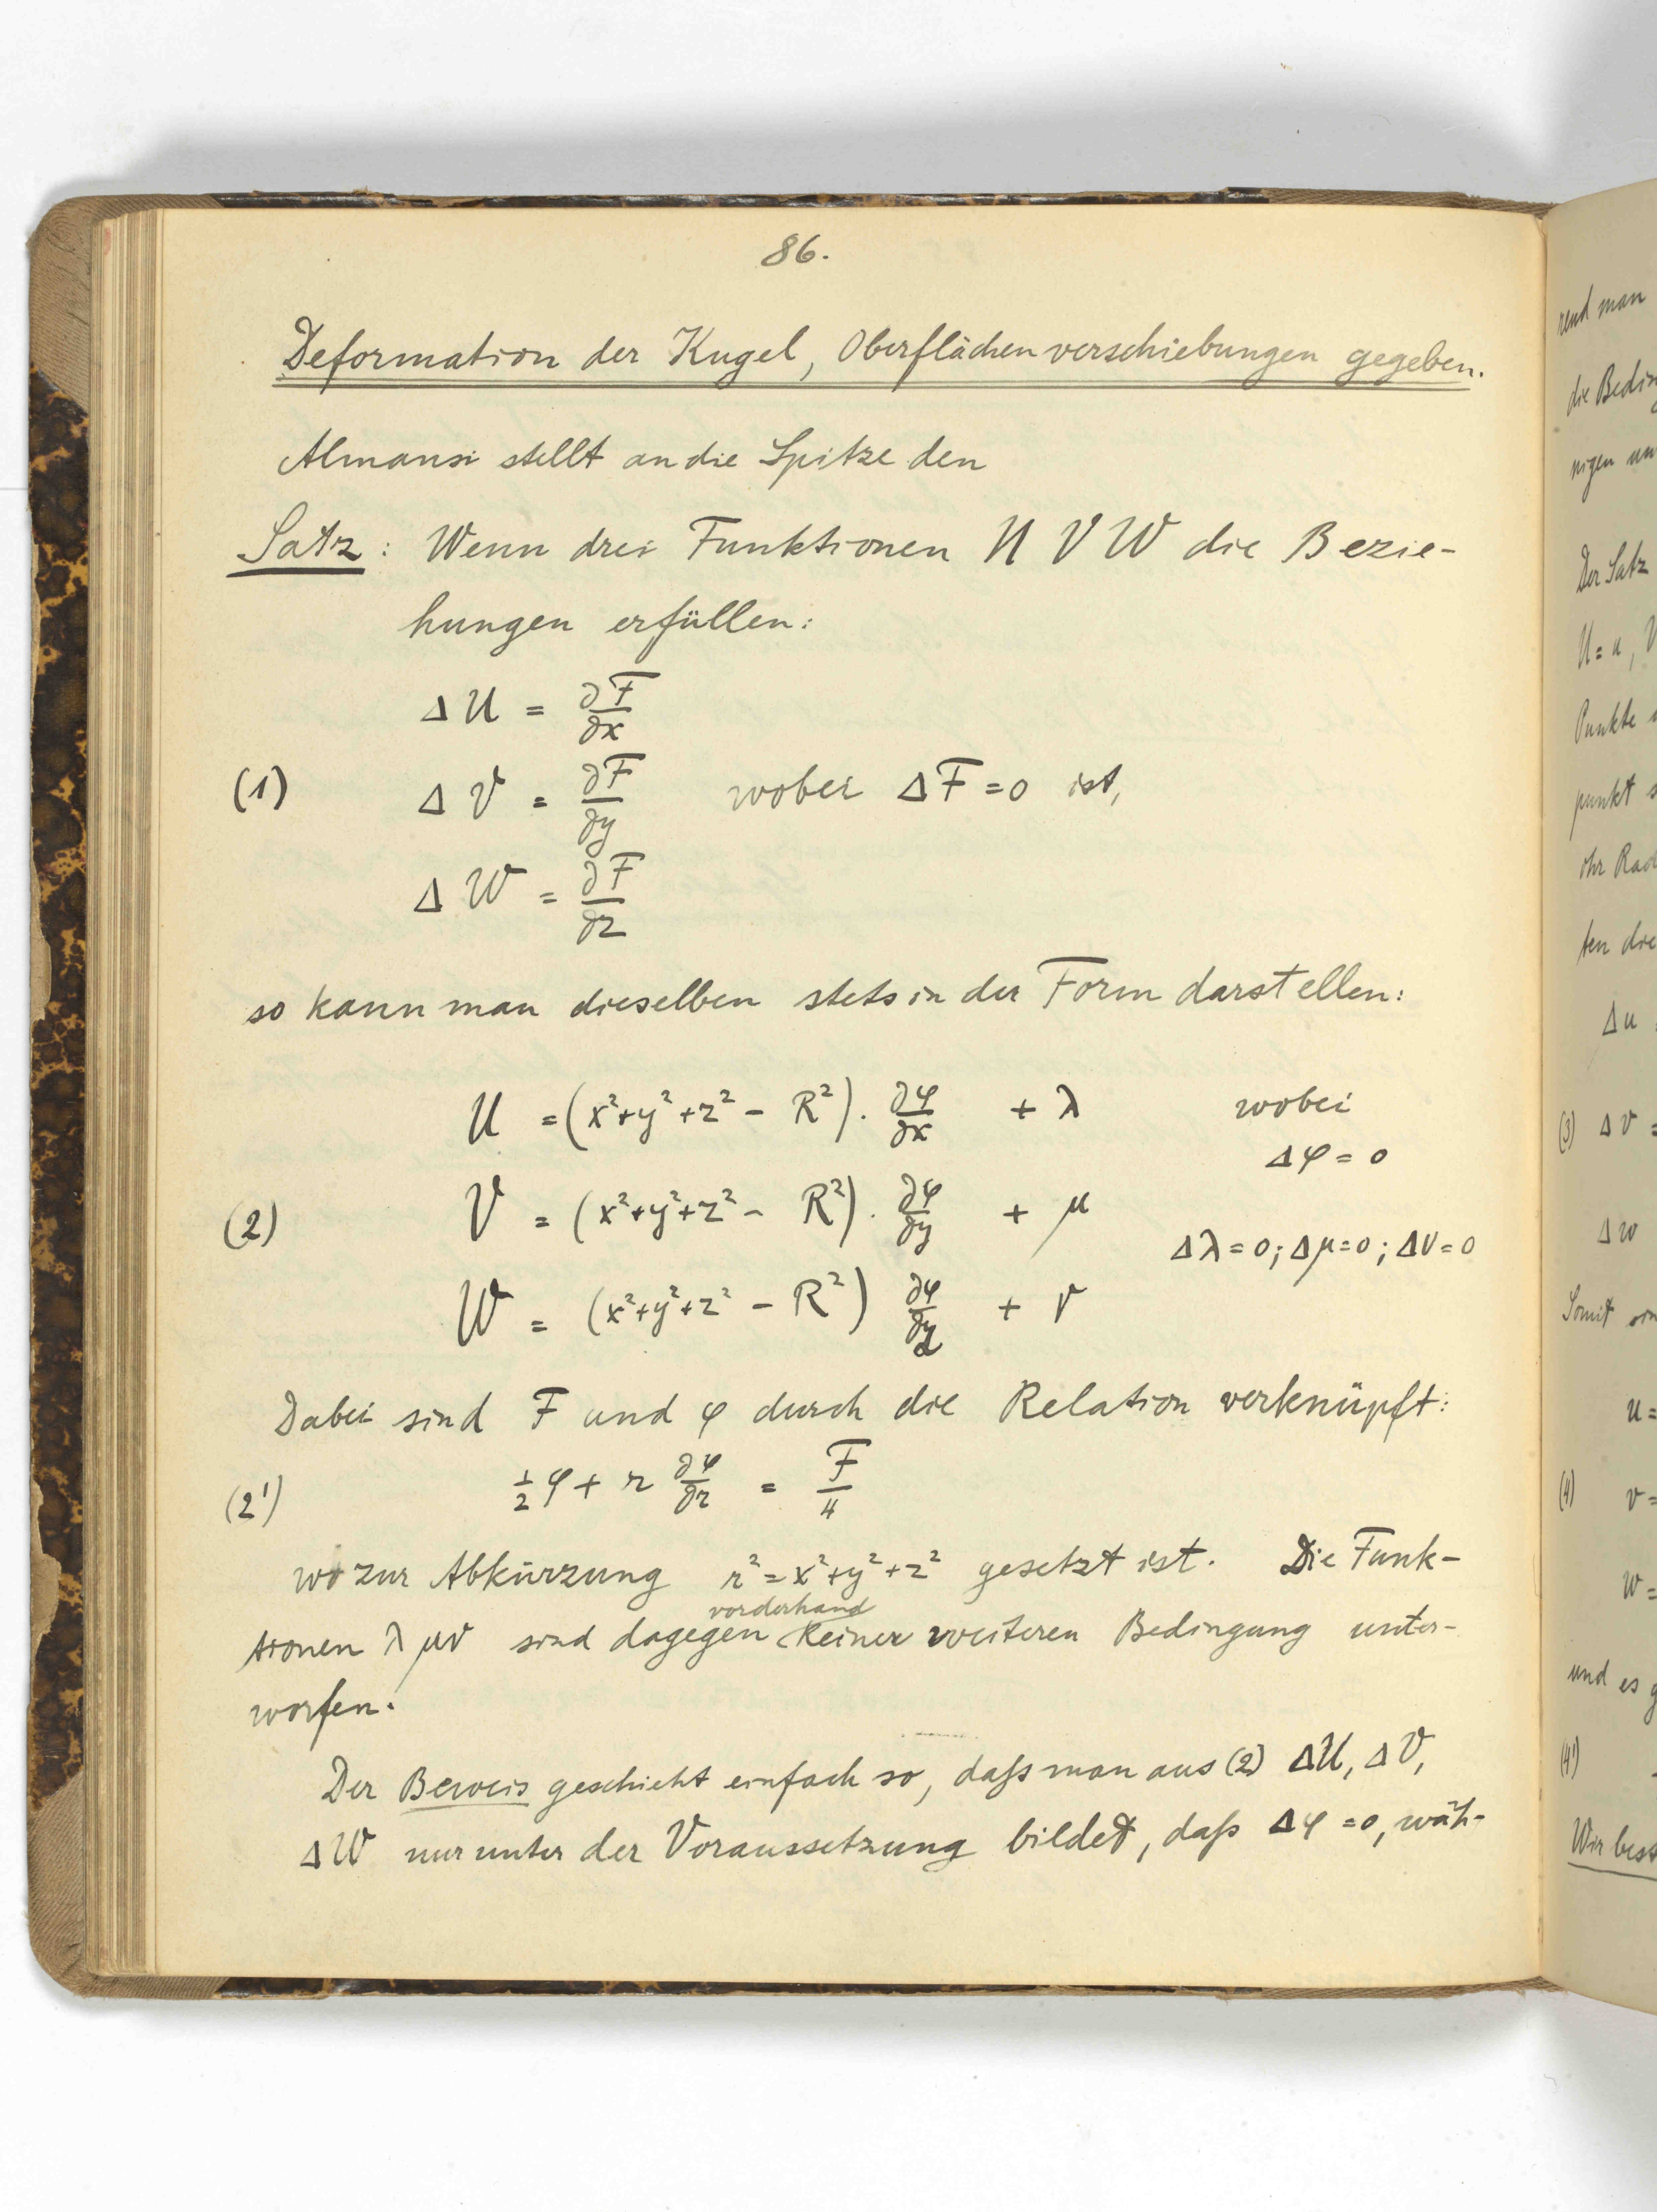 86.
Deformation der Kugel, Oberflächenverschiebungen gegeben.
Almansi stellt an die Spitze den
Satz: Wenn drei Funktionen U V W die Bezie-
hungen erfüllen:
ΔU = ∂F/∂x
(1) ΔV = ∂F/∂y wobei ΔF = 0 ist,
ΔW = ∂F/∂z
so kann man dieselben stets in der Form darstellen:
U = (x²+y²+z² - R²). ∂φ/∂x + λ wobei
Δφ = 0
(2) V = (x²+y²+z² - R²). ∂φ/∂y + μ
Δλ=0; Δμ=0; Δν=0
W = (x²+y²+z² - R²) ∂φ/∂z + ν
Dabei sind F und φ durch die Relation verknüpft:
(2') ½φ + r ∂φ/∂r = F/4
wo zur Abkürzung r²=x²+y²+z² gesetzt ist. Die Funk-
vorderhand
tionen λ μ ν sind dagegen keiner weiteren Bedingung unter-
worfen.
Der Beweis geschieht einfach so, daſs man aus (2) ΔU, ΔV,
ΔW nur unter der Voraussetzung bildet, daſs Δφ=0, wäh-
rend man
die Bedin
nigen un
Der Satz
U=u, V
Punkte
punkt s
ihr Rad
ten die
Δu =
(3) Δv =
Δw
Somit
u =
(4) v =
w =
und es g
(4')
Wir bess